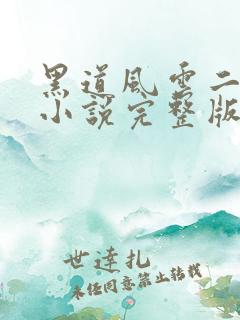 黑道风云二
小说完整版
世達扎
未经同意禁止转载